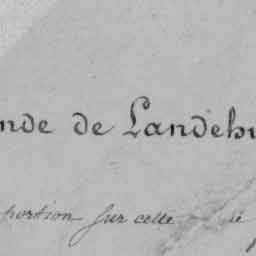 nde de Landehu
portion sur celle